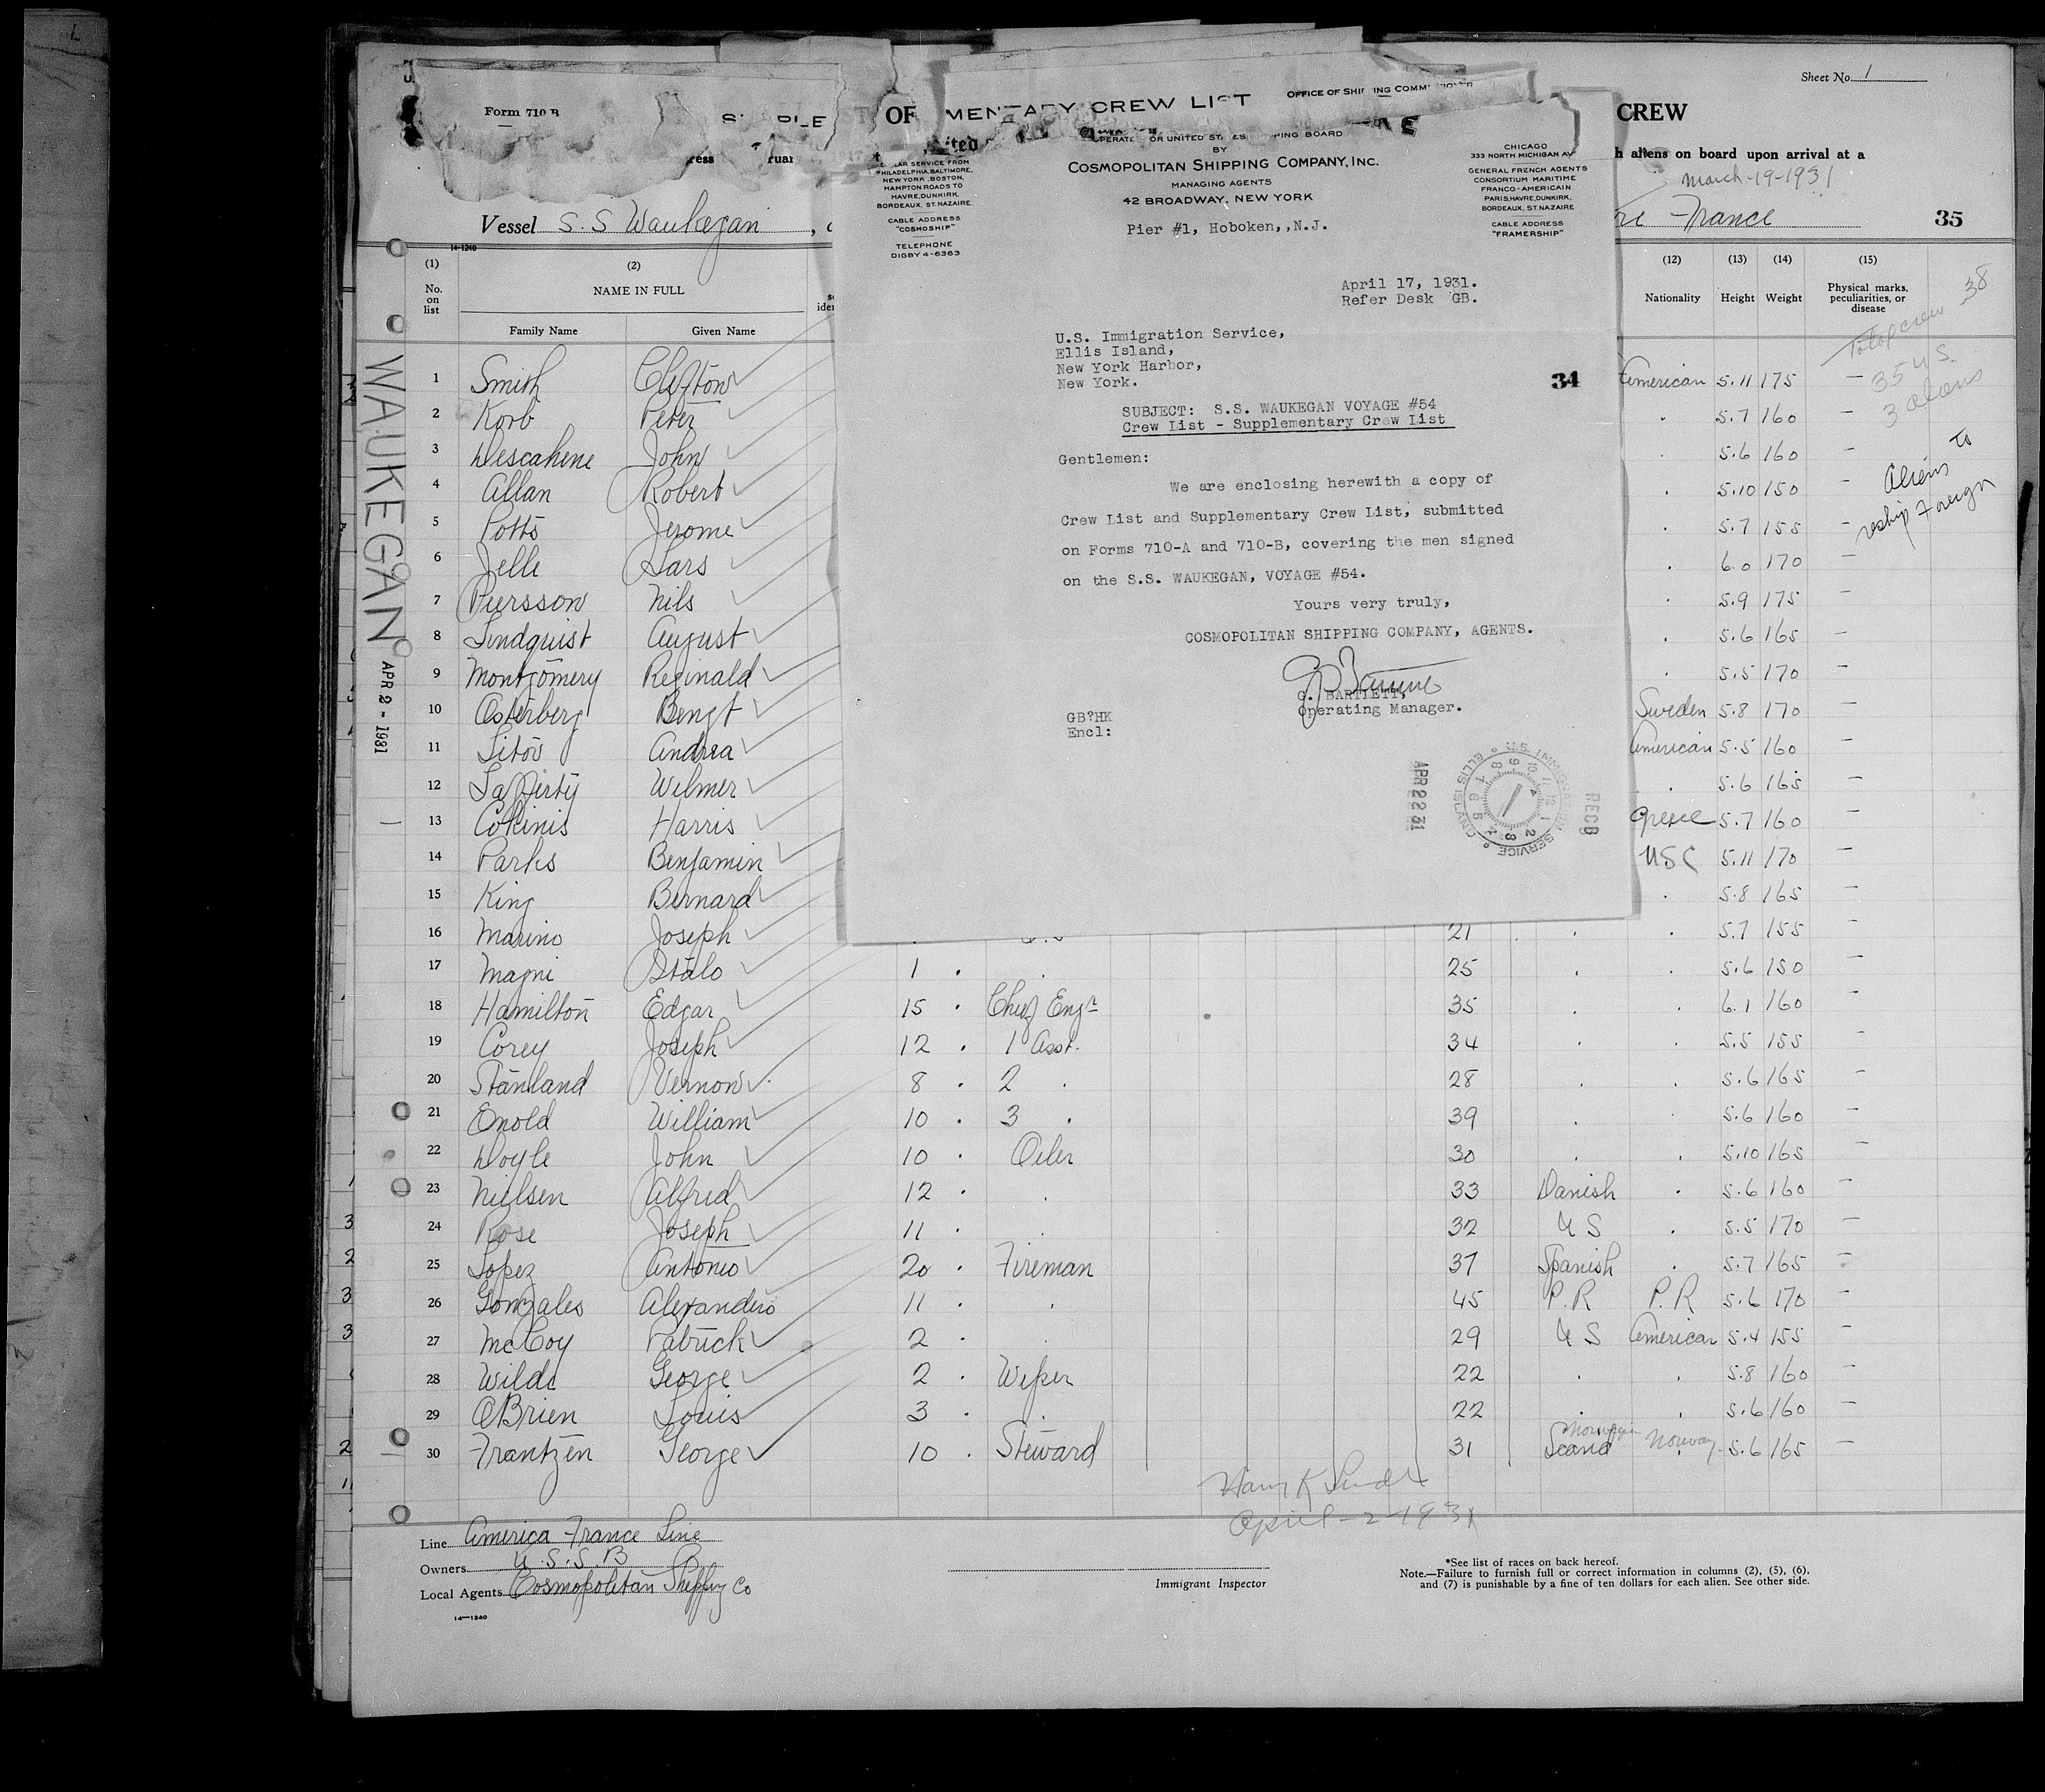 Sheet No. 1
Form 710 B
OF
MENTARY CREW LIST
CREW
h aliens on board upon arrival at a
March-19-1931
Vessel S.S Waukegan
France
35
14-1240
OPERATE FOR UNITED STATES SHIPPING BOARD
BY
COSMOPOLITAN SHIPPING COMPANY, INC.
MANAGING AGENTS
42 BROADWAY, NEW YORK
Pier #1, Hoboken,,N.J.
AR SERVICE FROM
PHILADELPHIA, BALTIMORE,
NEW YORK, BOSTON,
HAMPTON ROADS TO
HAVRE, DUNKIRK,
BORDEAUX, ST. NAZAIRE
CABLE ADDRESS
"COSMOSHIP"
TELEPHONE
DIGBY 4-6363
CHICAGO
333 NORTH MICHIGAN AV
GENERAL FRENCH AGENTS
CONSORTIUM MARITIME
FRANCO-AMERICAIN
PARIS, HAVRE, DUNKIRK,
BORDEAUX, ST. NAZAIRE
CABLE ADDRESS
"FRAMERSHIP"
April 17, 1931.
Refer Desk GB.
U.S. Immigration Service,
Ellis Island,
New York Harbor,
New York.
34
SUBJECT: S.S. WAUKEGAN VOYAGE #54
Crew List - Supplementary Crew List
Gentlemen:
We are enclosing herewith a copy of
Crew List and Supplementary Crew List, submitted
on Forms 710-A and 710-B, covering the men signed
on the S.S. WAUKEGAN, VOYAGE #54.
Yours very truly,
COSMOPOLITAN SHIPPING COMPANY, AGENTS.
G. BARTLETT,
Operating Manager.
GB?HK
Encl:
APR 22 31
U.S. IMMIGRATION SERVICE ELLIS ISLAND
RECD
WAUKEGAN
APR 2 - 1931
(1) (2) (12) (13) (14) (15)
No. on list NAME IN FULL Nationality Height Weight Physical marks, peculiarities, or disease
Family Name Given Name
Total crew 38
35 U S.
3 aliens
Aliens to
reship Foreign
1 Smith Clifton American 5.11 175 —
2 Korb Peter . 5.7 160 —
3 Descahene John . 5.6 160 —
4 Allan Robert . 5.10 150 —
5 Potts Jerome . 5.7 155 —
6 Jelle Lars . 6.0 170 —
7 Piersson Nils . 5.9 175 —
8 Lindquist August . 5.6 165 —
9 Montgomery Reginald . 5.5 170 —
10 Osterberg Bengt Sweden 5.8 170 —
11 Litov Andrea American 5.5 160 —
12 Lafferty Wilmer . 5.6 165 —
13 Cokinis Harris Greece 5.7 160 —
14 Parks Benjamin USC 5.11 170 —
15 King Bernard . 5.8 165 —
16 Marino Joseph 21 . . 5.7 155 —
17 Magni Italo 1 . . 25 . . 5.6 150 —
18 Hamilton Edgar 15 . Chief Engr 35 . . 6.1 160 —
19 Corey Joseph 12 . 1 Asst. 34 . . 5.5 155 —
20 Stanland Vernon 8 . 2 . 28 . . 5.6 165 —
21 Enold William 10 . 3 . 39 . . 5.6 160 —
22 Doyle John 10 . Oiler 30 . . 5.10 165 —
23 Nielsen Alfred 12 . . 33 Danish . 5.6 160 —
24 Rose Joseph 11 . . 32 U S . 5.5 170 —
25 Lopez Antonio 20 . Fireman 37 Spanish . 5.7 165 —
26 Gonzales Alexandero 11 . . 45 P.R P.R 5.6 170 —
27 McCoy Patrick 2 . . 29 U S American 5.4 155 —
28 Wilde George 2 . Wiper 22 . . 5.8 160 —
29 O'Brien Louis 3 . . 22 . . 5.6 160 —
30 Frantzen George 10 . Steward 31 Scand Norwegian Norway 5.6 165 —
April-2-1931
Line America France Line
Owners U.S.S.B
Local Agents Cosmopolitan Shipping Co
14—1240
Immigrant Inspector
*See list of races on back hereof.
Note.—Failure to furnish full or correct information in columns (2), (5), (6),
and (7) is punishable by a fine of ten dollars for each alien. See other side.